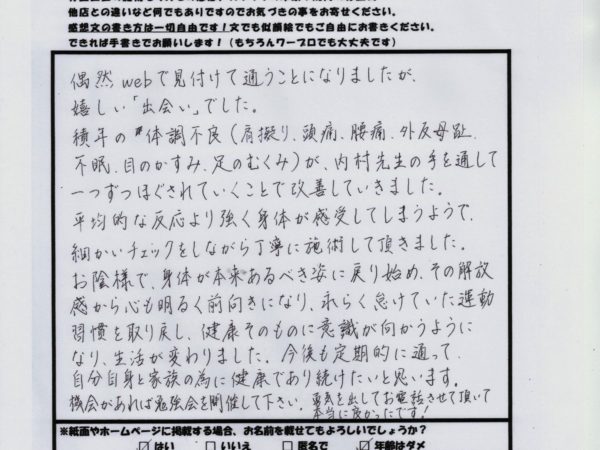 他店との違いなど何でもありですのでお気づきの事をお寄せください。
感想文の書き方は一切自由です!文でも似顔絵でもご自由にお書きください。
できれば手書きでお願いします!(もちろんワープロでも大丈夫です)
偶然webで見付けて通うことになりましたが、
嬉しい「出会い」でした。
積年の体調不良(肩擬り、頭痛、腰痛、外反母趾、
不眠、目のかすみ、足のむくみ)が、内村先生の手を通して
一つずつほぐされていくことで改善していきました。
平均的な反応より強く身体が感受してしまうようで、
細かいチェックをしながら丁寧に施術して頂きました。
お陰様で、身体が本来あるべき姿に戻り始め、その解放
感から心も明るく前向きになり、永らく怠けていた運動
習慣を取り戻し、健康そのものに意識が向かうように
なり、生活が変わりました。今後も定期的に通って、
自分自身と家族の為に健康であり続けたいと思います。
機会があれば勉強会を開催して下さい。勇気を出してお電話させて頂いて
本当に良かったです!
※紙面やホームページに掲載する場合、お名前を載せてもよろしいでしょうか?
はい いいえ 匿名で 年齢はダメ